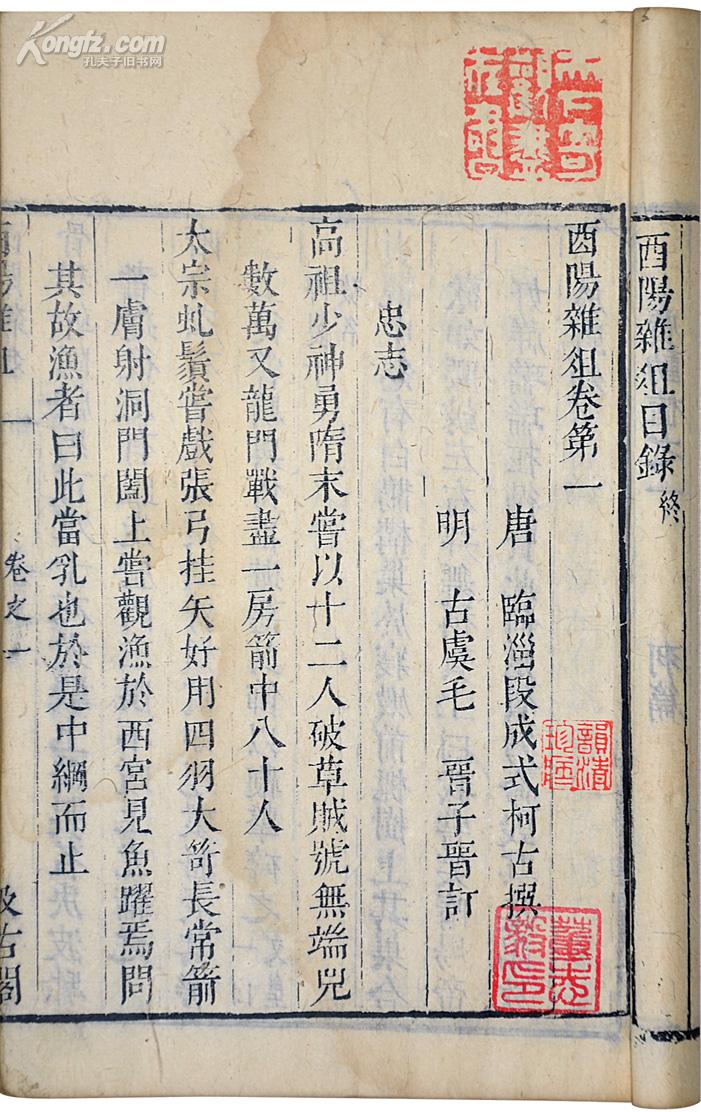 Kongfz.com
孔夫子旧书网
酉陽雜俎目錄終
酉陽雜俎卷第一
唐 臨淄段成式柯古撰
明 古虞毛 晉子晉訂
忠志
高祖少神勇隋末嘗以十二人破草賊號無端兒
數萬又龍門戰盡一房箭中八十人
太宗虬鬚嘗戲張弓挂矢好用四羽大笴長常箭
一膚射洞門闔上嘗觀漁於西宮見魚躍焉問
其故漁者曰此當乳也於是中綱而止
酉陽雜俎
卷之一
汲古閣
韻清
董志
毅印